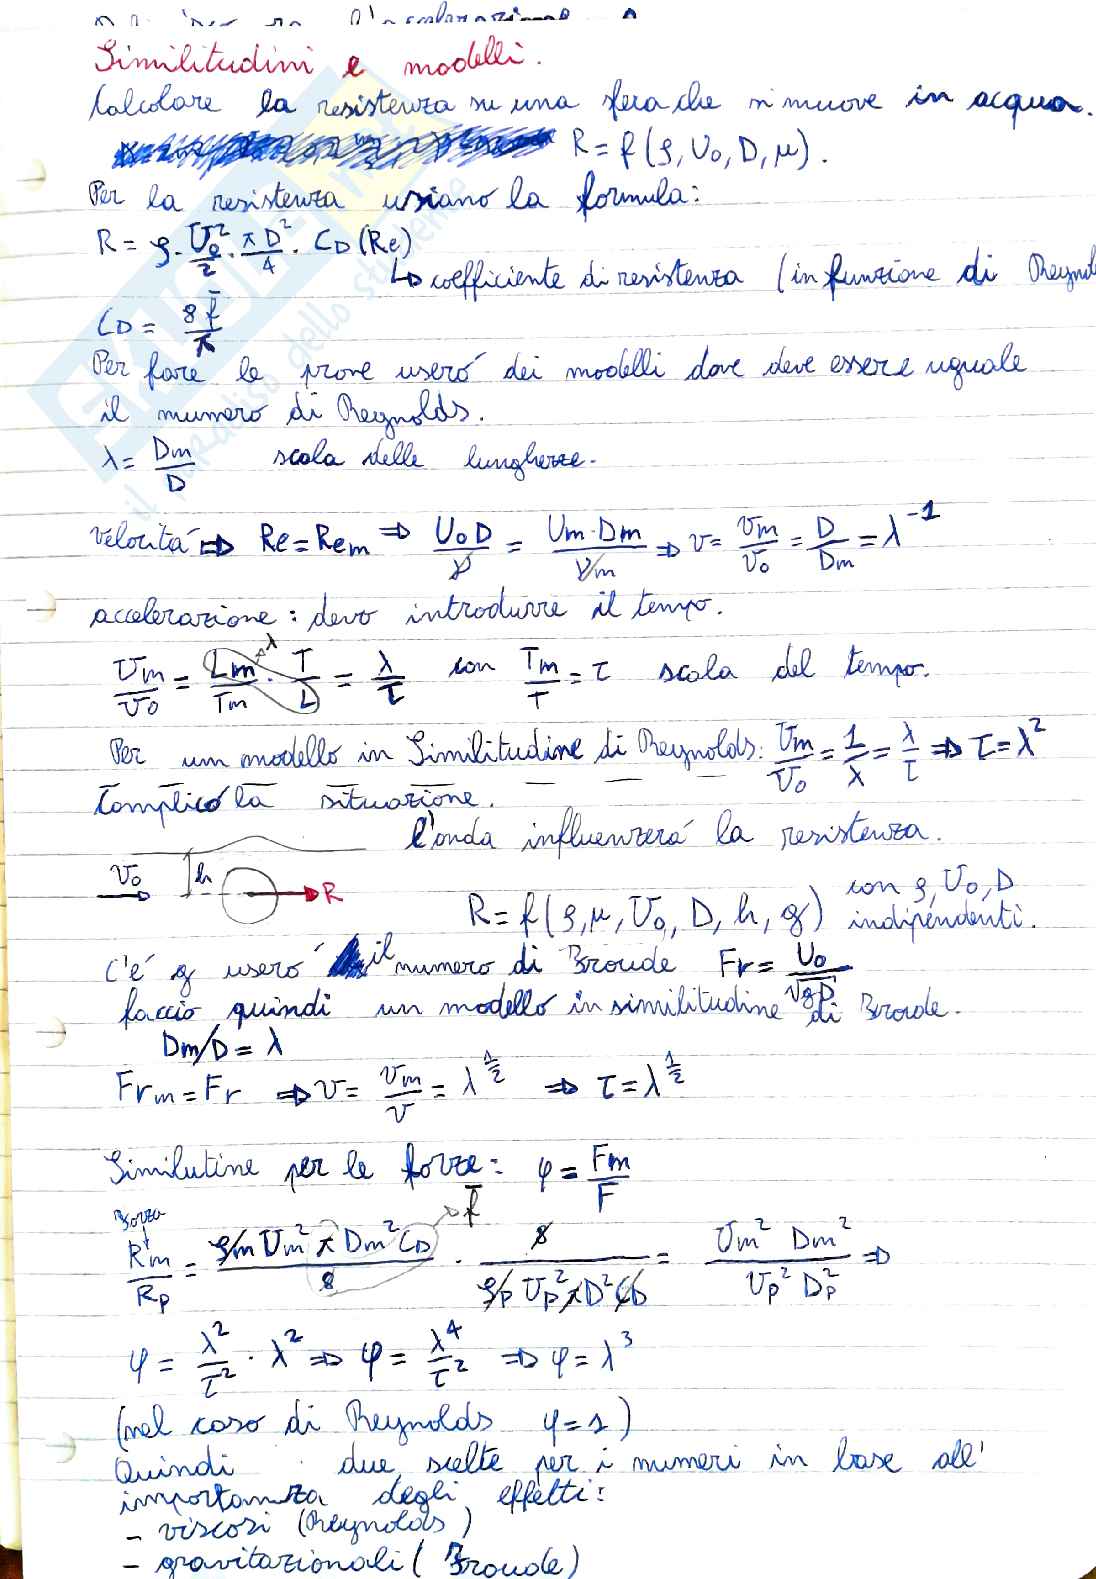 l'accelerazione
Similitudini e modelli.
Calcolare la resistenza su una sfera che si muove in acqua.
R = f (ρ, U₀, D, μ).
Per la resistenza usiamo la formula:
R = ρ · U₀²/2 · πD²/4 · CD (Re)
↳ coefficiente di resistenza (in funzione di Reynol
CD = 8f̄/π
Per fare le prove useró dei modelli dove deve essere uguale
il numero di Reynolds.
λ = Dm/D scala delle lunghezze.
velocitá ⇒ Re = Rem ⇒ U₀D/ν = Um·Dm/νm ⇒ v = vm/v₀ = D/Dm = λ⁻¹
accelerazione: devo introdurre il tempo.
Um/U₀ = Lm/Tm · T/L = λ/τ con Tm/T = τ scala del tempo.
λ
Per un modello in Similitudine di Reynolds: Um/U₀ = 1/λ = λ/τ ⇒ τ = λ²
Complico la situazione.
l'onda influenzerá la resistenza.
U₀ h R
R = f (ρ, μ, U₀, D, h, g) con ρ, U₀, D
indipendenti.
C'é g useró il numero di Froude Fr = U₀/√gD
faccio quindi un modello in similitudine di Froude.
Dm/D = λ
Frm = Fr ⇒ v = vm/v = λ^1/2 ⇒ τ = λ^1/2
Similutine per le forze: φ = Fm/F
Forza
f̄
Rm/Rp = ρm Um² π Dm² CD/8 · 8/ρp Up² π D² CD = Um² Dm²/Up² Dp² ⇒
φ = λ²/τ² · λ² ⇒ φ = λ⁴/τ² ⇒ φ = λ³
(nel caso di Reynolds φ = 1)
Quindi due scelte per i numeri in base all'
importanza degli effetti:
- viscosi (Reynolds)
- gravitazionali (Froude)
il paradiso dello studente